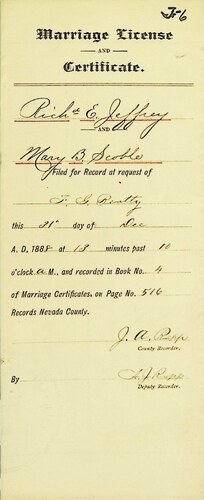 J-6
Marriage License
AND
Certificate.
Richd E. Jeffrey
AND
Mary B. Scoble
Filed for Record at request of
F. G. Beatty
this 21st day of Dec
A. D, 1888 at 18 minutes past 10
o'clock A M., and recorded in Book No. 4
of Marriage Certificates, on Page No. 516
Records Nevada County.
J. A. Rapp
County Recorder.
By
Rapp
Deputy Recorder.